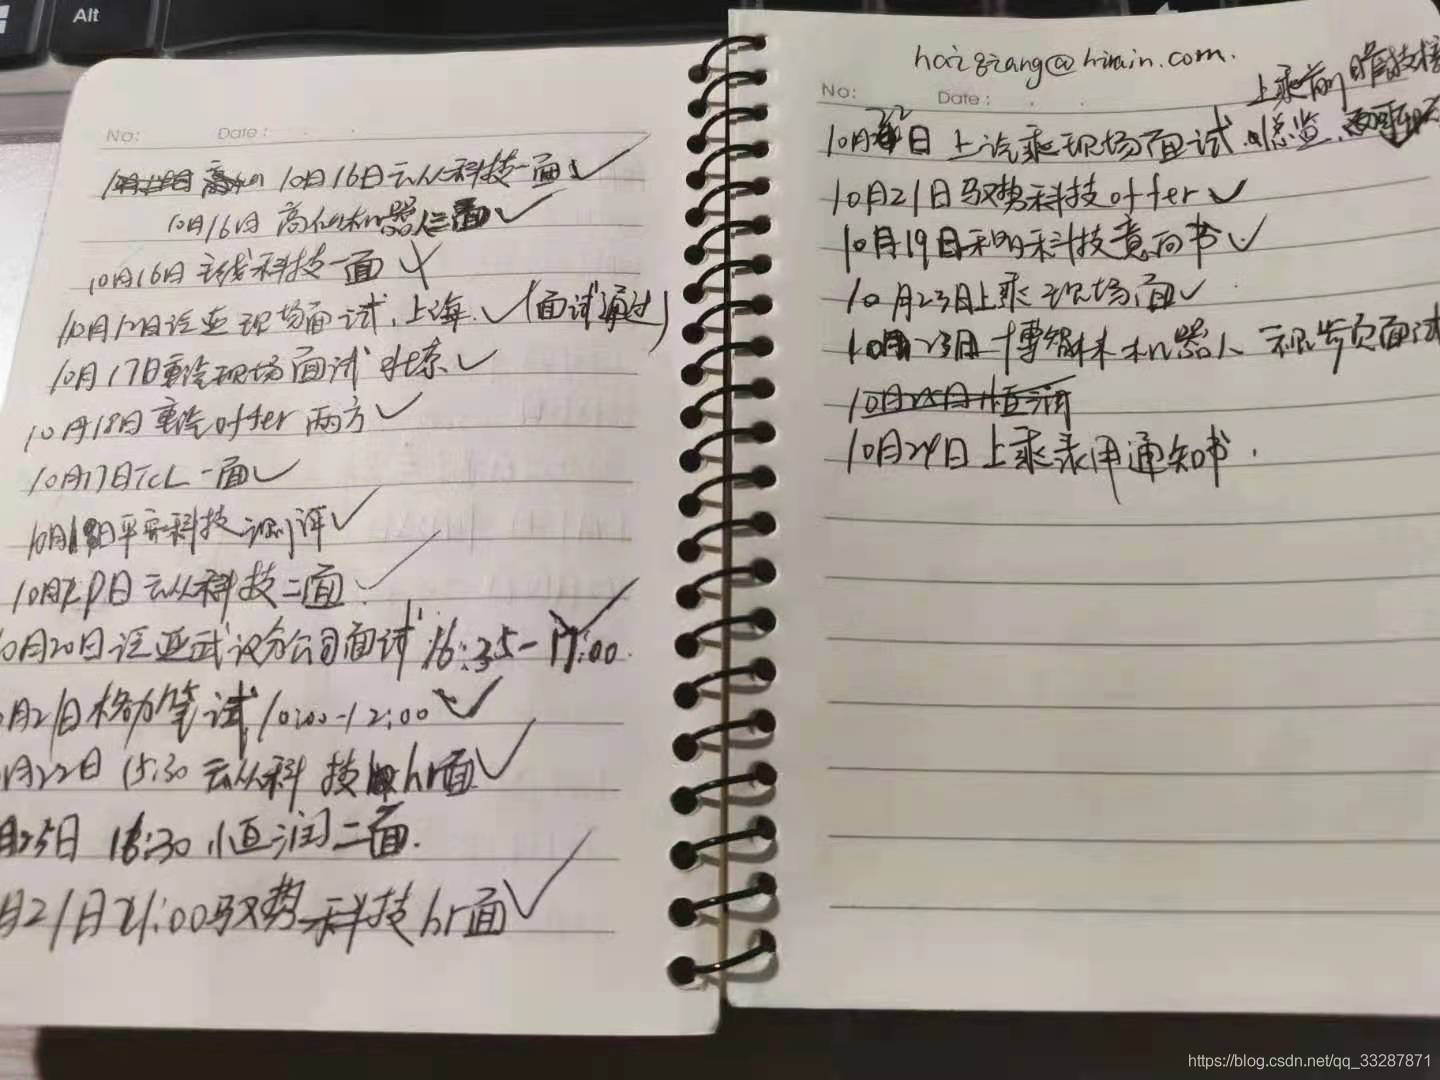 Alt
No:
Date:
10月16日云从科技一面
10月16日高仙机器人二面
10月16日 科技一面
10月12日泛亚现场面试,上海(面试通过)
10月17日重塑现场面试 北京
10月18日重塑offer 两方
10月17日TCL一面
10月 日平安科技测评
10月 日云从科技二面
10月20日泛亚武汉分公司面试 16:35-17:00
月21日格力笔试 10:00-12:00
月22日 15:30 云从科技 hr面
月25日 16:30 恒润二面.
月21日 21:00驭势科技 hr面
haiqiang@hirain.com.
No:
Date:
上乘前瞻技术
10月22日 上汽乘现场面试 总监
10月21日驭势科技offer
10月19日禾多科技意向书
10月23日上乘现场面
10月23日 博智林机器人 视频面试
10月25日恒润
10月24日上乘录用通知书.
https://blog.csdn.net/qq_33287871